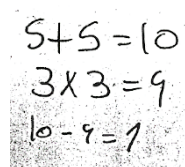 5+5=10
3×3=9
10-9=1